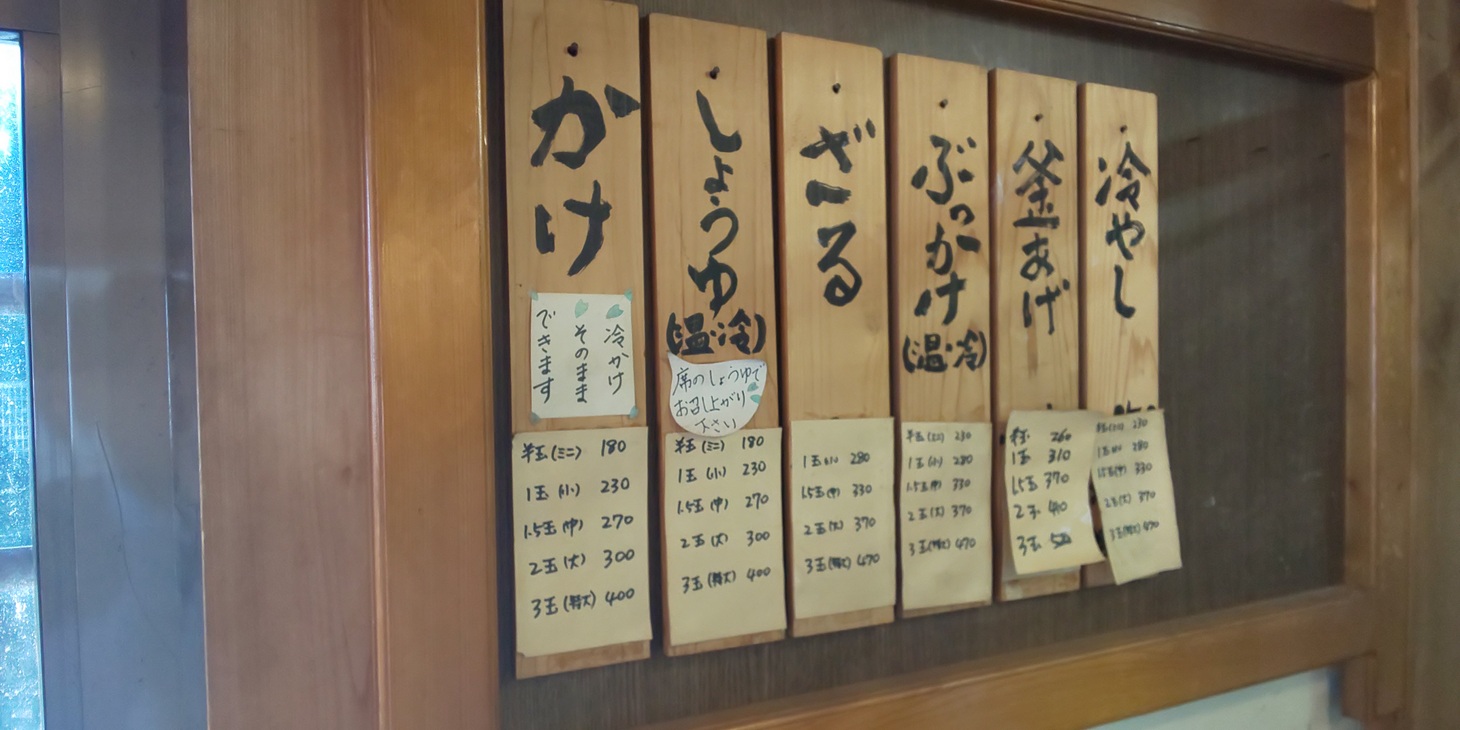 かけ
冷かけ
そのまま
できます
半玉(ミニ) 180
1玉(小) 230
1.5玉(中) 270
2玉(大) 300
3玉(特大) 400
しょうゆ
(温・冷)
席のしょうゆで
お召し上がり
下さい
半玉(ミニ) 180
1玉(小) 230
1.5玉(中) 270
2玉(大) 300
3玉(特大) 400
ざる
1玉(小) 280
1.5玉(中) 330
2玉(大) 370
3玉(特大) 470
ぶっかけ
(温・冷)
半玉(ミニ) 230
1玉(小) 280
1.5玉(中) 330
2玉(大) 370
3玉(特大) 470
釜あげ
半玉 260
1玉 310
1.5玉 370
2玉 410
3玉
冷やし
半玉(ミニ) 230
1玉(小) 280
1.5玉(中) 330
2玉(大) 370
3玉(特大) 470